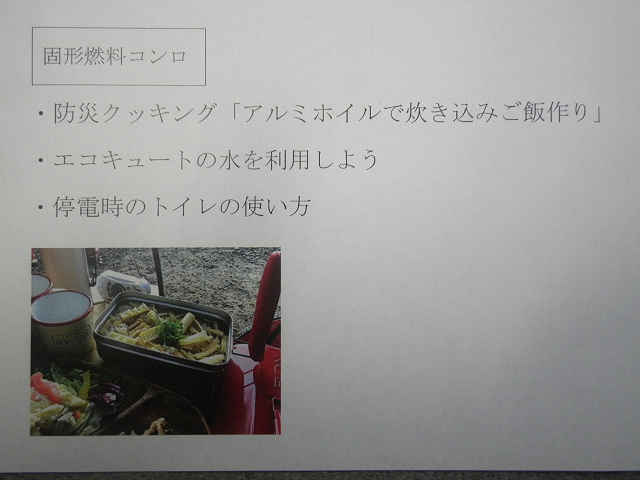 固形燃料コンロ
・防災クッキング「アルミホイルで炊き込みご飯作り」
・エコキュートの水を利用しよう
・停電時のトイレの使い方